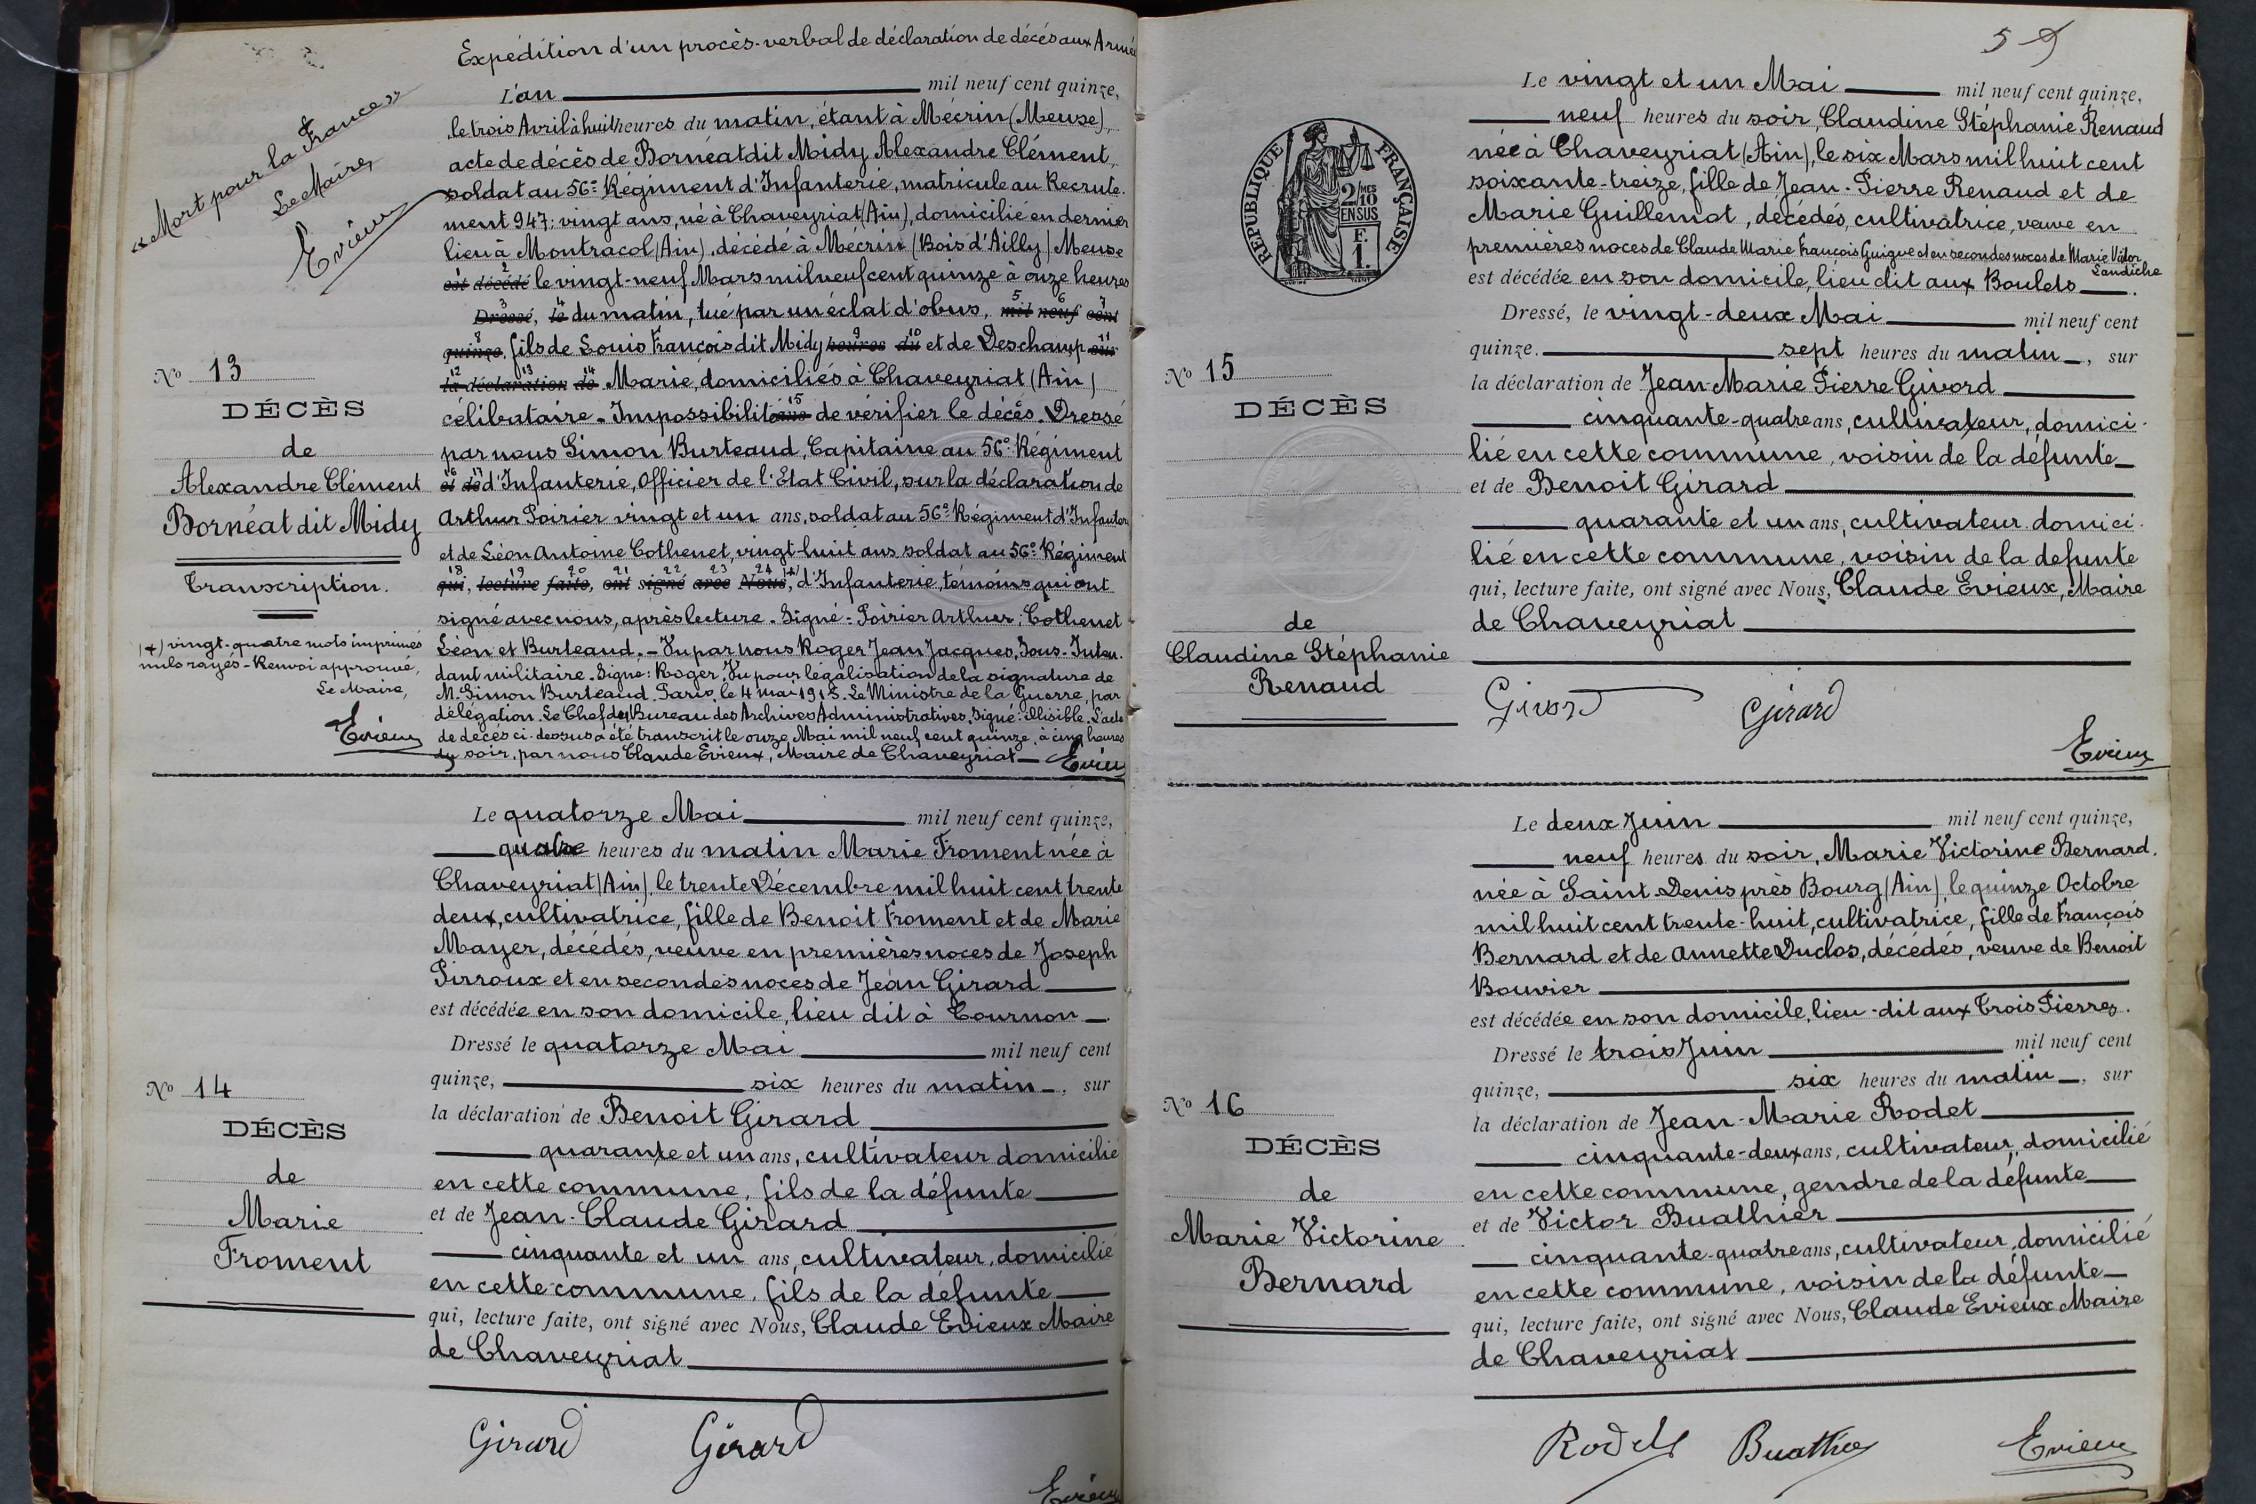 Expédition d'un procès-verbal de déclaration de décès aux Armé
« Mort pour la France »
Le Maire,
Evieux
L'an mil neuf cent quinze,
le trois Avril à huit heures du matin, étant à Mécrin (Meuse),
acte de décès de Bornéat dit Midy Alexandre Clément,
soldat au 56e Régiment d'Infanterie, matricule au Recrute-
ment 947; vingt ans, né à Chaveyriat (Ain), domicilié en dernier
lieu à Montracol (Ain), décédé à Mecrin (Bois d'Ailly) Meuse
1 2
est décédé le vingt-neuf Mars mil neuf cent quinze à onze heures
3 4 5 6 7
Dressé, le du matin, tué par un éclat d'obus, mil neuf cent
8 9 10 11
quinze, fils de Louis François dit Midy heures du et de Deschamp sur
12 13 14
la déclaration de Marie, domiciliés à Chaveyriat (Ain)
15
célibataire. Impossibilité ans de vérifier le décès. Dressé
par nous Simon Burteaud, Capitaine au 56e Régiment
16 17
et de d'Infanterie, Officier de l'Etat Civil, sur la déclaration de
Arthur Poirier vingt et un ans, soldat au 56e Régiment d'Infanter
et de Léon Antoine Cothenet, vingt-huit ans soldat au 56e Régiment
18 19 20 21 22 23 24
qui, lecture faite, ont signé avec Nous, (+) d'Infanterie, témoins qui ont
signé avec nous, après lecture. Signé: Poirier Arthur; Cothenet
Léon et Burteaud. – Vu par nous Roger Jean Jacques, Sous-Inten-
dant militaire. Signé: Roger. Vu pour légalisation de la signature de
M. Simon Burteaud. Paris, le 4 mai 1915. Le Ministre de la Guerre, par
délégation. Le Chef du Bureau des Archives Administratives. Signé: illisible. L'acte
de décès ci-dessus a été transcrit le onze Mai mil neuf cent quinze, à cinq heures
du soir, par nous Claude Evieux, Maire de Chaveyriat — Evieu
No 13
DÉCÈS
de
Alexandre Clément
Bornéat dit Midy
Transcription.
(+) vingt-quatre mots imprimés
nuls rayés - Renvoi approuvé,
Le Maire,
Evieux
Le quatorze Mai mil neuf cent quinze,
quatre heures du matin Marie Froment née à
Chaveyriat (Ain), le trente Décembre mil huit cent trente
deux, cultivatrice, fille de Benoit Froment et de Marie
Mayer, décédés, veuve en premières noces de Joseph
Pirroux et en secondes noces de Jean Girard
est décédée en son domicile, lieu dit à Tournon
Dressé le quatorze Mai mil neuf cent
quinze, six heures du matin, sur
la déclaration de Benoit Girard
quarante et un ans, cultivateur domicilié
en cette commune, fils de la défunte
et de Jean-Claude Girard
cinquante et un ans, cultivateur, domicilié
en cette commune, fils de la défunte
qui, lecture faite, ont signé avec Nous, Claude Evieux Maire
de Chaveyriat
No 14
DÉCÈS
de
Marie
Froment
Girard Girard
Evieux
59
REPUBLIQUE FRANÇAISE
2/10MES
EN SUS
F.
1.
Le vingt et un Mai mil neuf cent quinze,
neuf heures du soir, Claudine Stéphanie Renaud
née à Chaveyriat (Ain), le six Mars mil huit cent
soixante-treize, fille de Jean-Pierre Renaud et de
Marie Guillemot, décédés, cultivatrice, veuve en
premières noces de Claude Marie François Guigue et en secondes noces de Marie Victor
Landiche
est décédée en son domicile, lieu dit aux Boulets
Dressé, le vingt-deux Mai mil neuf cent
quinze. sept heures du matin, sur
la déclaration de Jean-Marie Pierre Givord
cinquante-quatre ans, cultivateur, domici-
lié en cette commune, voisin de la défunte
et de Benoit Girard
quarante et un ans, cultivateur domici-
lié en cette commune, voisin de la defunte
qui, lecture faite, ont signé avec Nous, Claude Evieux, Maire
de Chaveyriat
No 15
DÉCÈS
de
Claudine Stéphanie
Renaud
Givord Girard
Evieux
Le deux Juin mil neuf cent quinze,
neuf heures du soir, Marie Victorine Bernard,
née à Saint-Denis près Bourg (Ain), le quinze Octobre
mil huit cent trente-huit, cultivatrice, fille de François
Bernard et de Annette Duclos, décédés, veuve de Benoit
Bouvier
est décédée en son domicile, lieu-dit aux Trois Pierres.
Dressé le trois Juin mil neuf cent
quinze, six heures du matin, sur
la déclaration de Jean-Marie Rodet
cinquante-deux ans, cultivateur, domicilié
en cette commune, gendre de la défunte
et de Victor Buathier
cinquante-quatre ans, cultivateur, domicilié
en cette commune, voisin de la défunte
qui, lecture faite, ont signé avec Nous, Claude Evieux Maire
de Chaveyriat
No 16
DÉCÈS
de
Marie Victorine
Bernard
Rodet Buathier Evieux